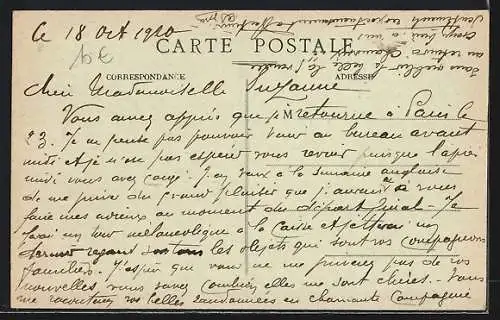 Ce 18 Oct 1910
CARTE POSTALE
CORRESPONDANCE
ADRESSE
Chère Mademoiselle Suzanne
Vous avez appris que je retourne à Paris le
23. Je ne pense pas pouvoir venir au bureau avant
midi et je n'ose pas espérer vous revoir puisque l'après
midi vous avez congé. J'en veux à la semaine anglaise
de me priver du grand plaisir que j'aurais eu à vous
faire mes adieux au moment du départ final. Je
ferai un tour mélancolique à la Caisse et jetterai un
dernier regard sur tous les objets qui sont vos compagnons
familiers. J'espère que vous ne me priverez pas de vos
nouvelles, vous savez combien elles me sont chères. Vous
me raconterez vos belles randonnées en charmante compagnie
sans oublier la belle